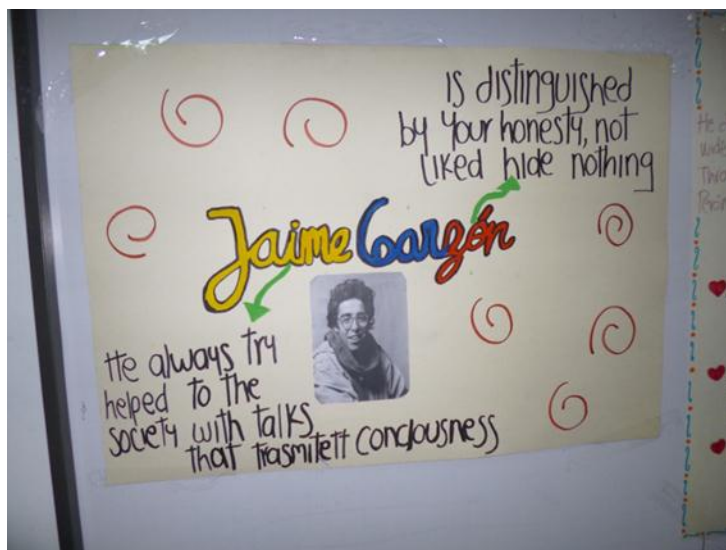 is distinguished
by your honesty, not
liked hide nothing
Jaime Garzón
He always try
helped to the
society with talks
that trasmitett conciousness